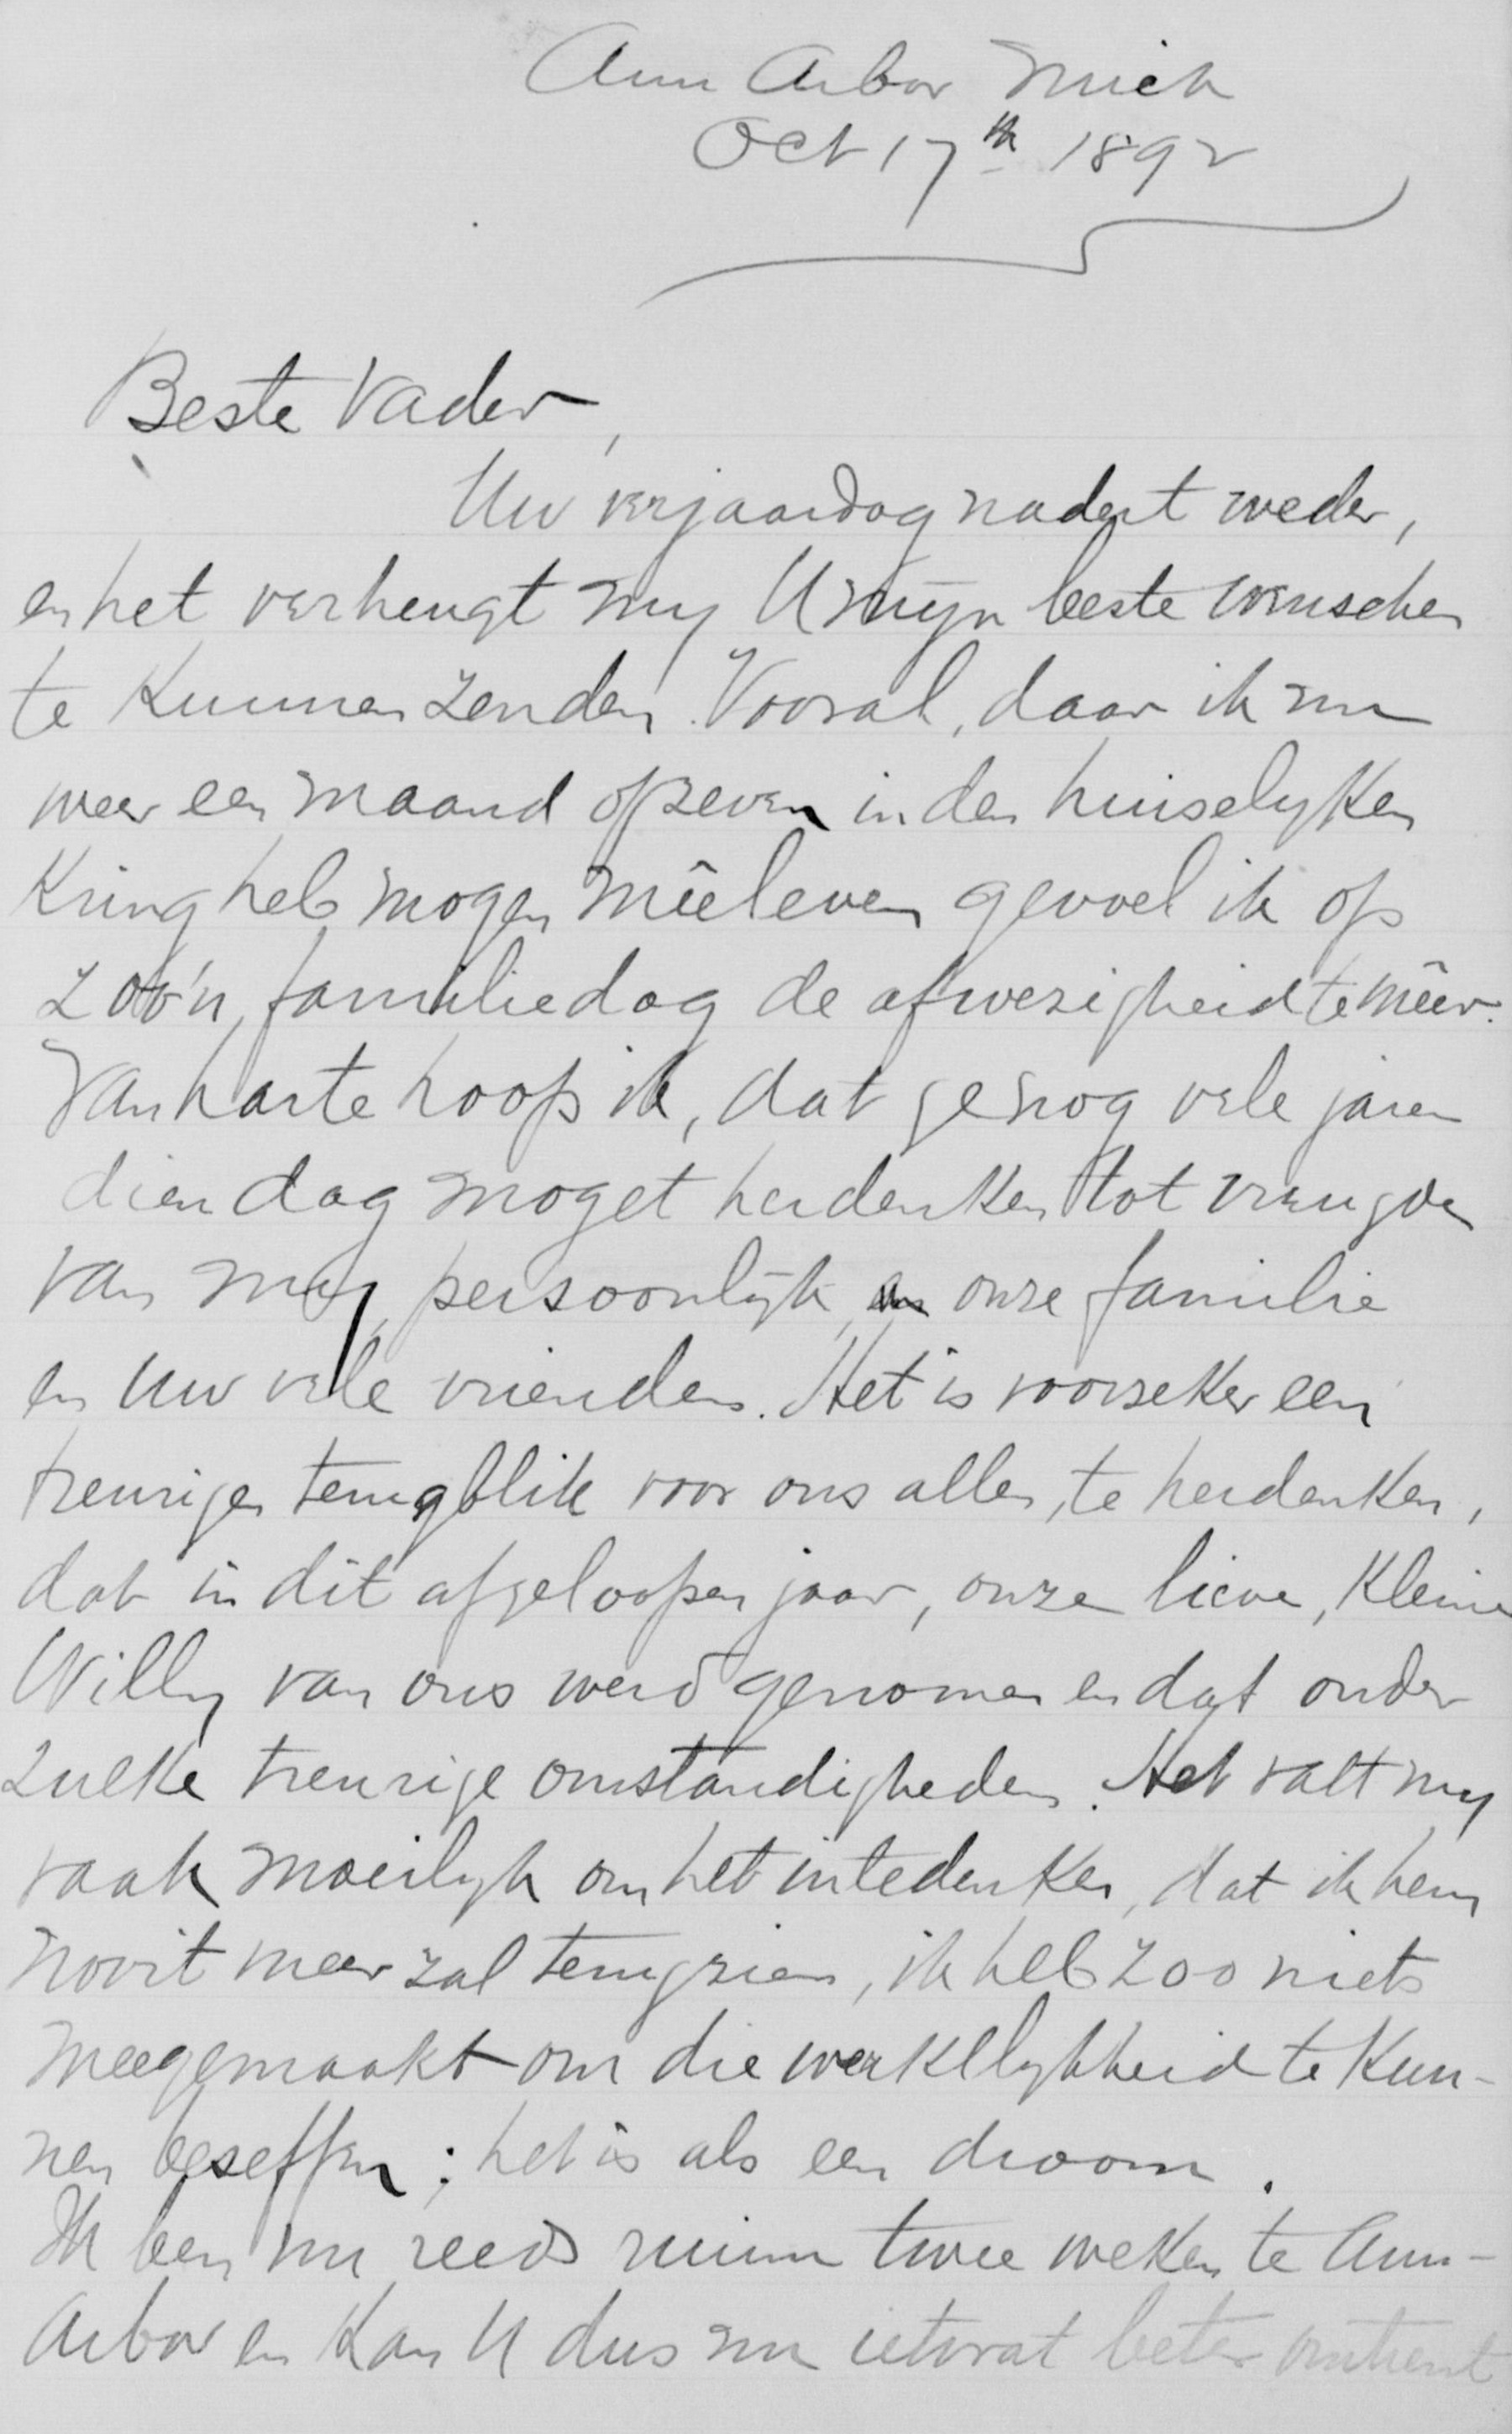 Ann Arbor Mich
Oct 17th 1892
Beste Vader,
Uw verjaardag nadert weder,
en het verheugt my U myn beste wenschen
te kunnen zenden. Vooral, daar ik nu
weer een maand of zeven in den huiselyken
Kring heb mogen mêeleven gevoel ik op
zoo'n familiedag de afwezigheid te mêer.
Van harte hoop ik, dat ge nog vele jaren
dien dag moget herdenken tot vreugde
van my persoonlyk, en onze familie
en Uw vele vrienden. Het is voorzeker een
treurigen terugblik voor ons allen, te herdenken,
dat in dit afgeloopen jaar, onze lieve, kleine
Willy van ons werd genomen en dat onder
zulke treurige omstandigheden. Het valt my
vaak moeilyk om het in te denken, dat ik hem
nooit meer zal terugzien, ik heb zoo niets
meegemaakt om die werkelykheid te kun-
nen beseffen; het is als een droom.
Ik ben nu reeds ruim twee weken te Ann-
Arbor en kan U dus nu ietwat beter omtrent